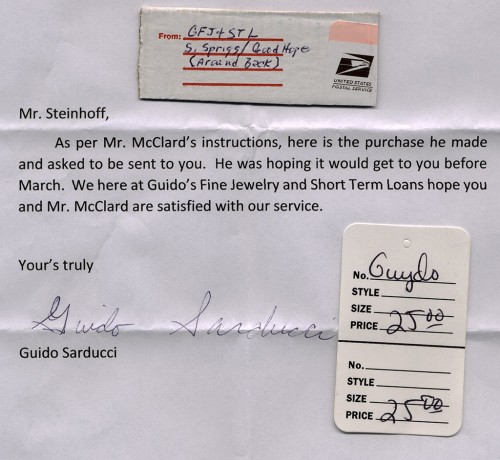 From: GFJ+STL
S. Sprigg/Good Hope
(Around Back)
UNITED STATES
POSTAL SERVICE
Mr. Steinhoff,
As per Mr. McClard's instructions, here is the purchase he made
and asked to be sent to you. He was hoping it would get to you before
March. We here at Guido's Fine Jewelry and Short Term Loans hope you
and Mr. McClard are satisfied with our service.
Your's truly
Guido Sarducci
Guido Sarducci
No. Guydo
STYLE
SIZE
PRICE 25 00
No.
STYLE
SIZE
PRICE 25 00